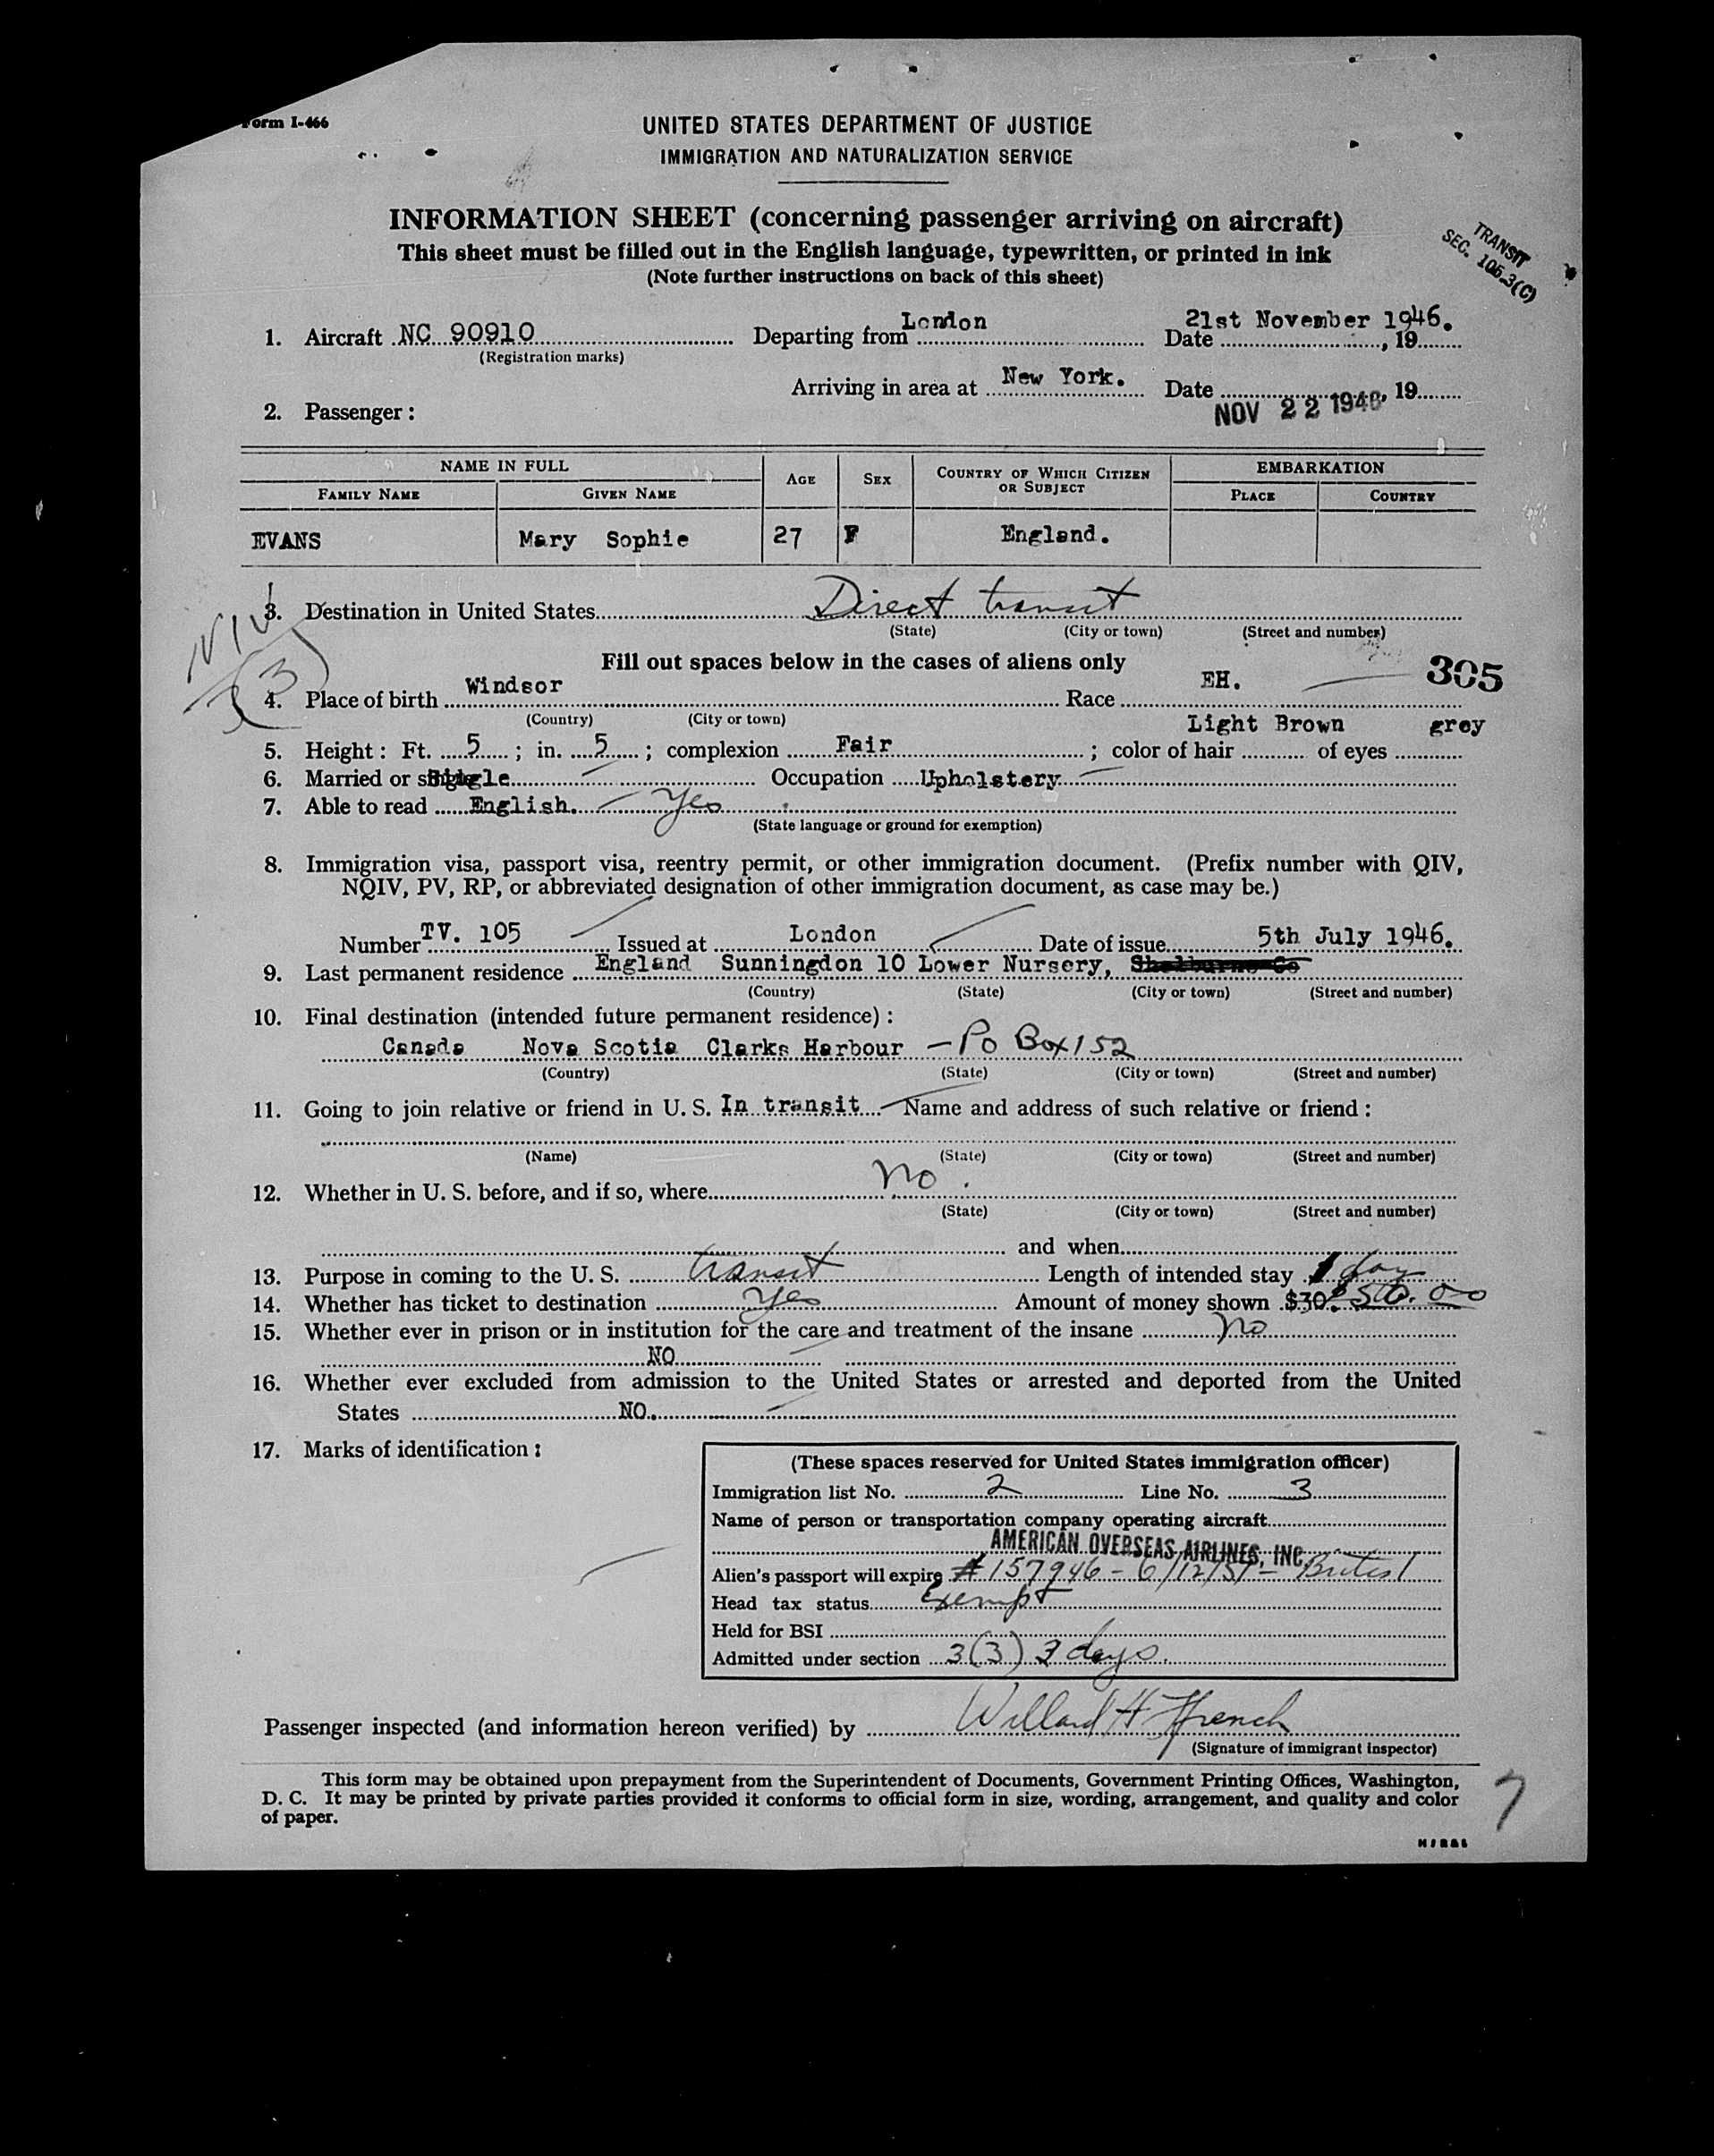 Form I-466
UNITED STATES DEPARTMENT OF JUSTICE
IMMIGRATION AND NATURALIZATION SERVICE
INFORMATION SHEET (concerning passenger arriving on aircraft)
This sheet must be filled out in the English language, typewritten, or printed in ink
(Note further instructions on back of this sheet)
TRANSIT
SEC. 105.3(C)
1. Aircraft NC 90910 Departing from London Date 21st November 1946. , 19
(Registration marks)
Arriving in area at New York. Date NOV 22 1946, 19
2. Passenger:
NAME IN FULL AGE SEX COUNTRY OF WHICH CITIZEN OR SUBJECT EMBARKATION
FAMILY NAME GIVEN NAME PLACE COUNTRY
EVANS Mary Sophie 27 F England.
3. Destination in United States Direct transit
(State) (City or town) (Street and number)
NIV
(3)
Fill out spaces below in the cases of aliens only
305
4. Place of birth Windsor Race EH.
(Country) (City or town)
5. Height: Ft. 5; in. 5; complexion Fair; color of hair Light Brown of eyes grey
6. Married or single Single Occupation Upholstery
7. Able to read English. Yes
(State language or ground for exemption)
8. Immigration visa, passport visa, reentry permit, or other immigration document. (Prefix number with QIV,
NQIV, PV, RP, or abbreviated designation of other immigration document, as case may be.)
Number TV. 105 Issued at London Date of issue 5th July 1946.
9. Last permanent residence England Sunningdon 10 Lower Nursery, Shelburne Co
(Country) (State) (City or town) (Street and number)
10. Final destination (intended future permanent residence):
Canada Nova Scotia Clarks Harbour - PO Box 152
(Country) (State) (City or town) (Street and number)
11. Going to join relative or friend in U. S. In transit Name and address of such relative or friend:
(Name) (State) (City or town) (Street and number)
12. Whether in U. S. before, and if so, where no.
(State) (City or town) (Street and number)
and when
13. Purpose in coming to the U. S. transit Length of intended stay 1 day
14. Whether has ticket to destination Yes Amount of money shown $30. $50.00
15. Whether ever in prison or in institution for the care and treatment of the insane no
NO
16. Whether ever excluded from admission to the United States or arrested and deported from the United
States NO.
17. Marks of identification:
(These spaces reserved for United States immigration officer)
Immigration list No. 2 Line No. 3
Name of person or transportation company operating aircraft
AMERICAN OVERSEAS AIRLINES, INC.
Alien's passport will expire # 157946 - 6/12/51 - British
Head tax status Exempt
Held for BSI
Admitted under section 3(3) 3 days.
Passenger inspected (and information hereon verified) by Willard H Ffrench
(Signature of immigrant inspector)
This form may be obtained upon prepayment from the Superintendent of Documents, Government Printing Offices, Washington,
D. C. It may be printed by private parties provided it conforms to official form in size, wording, arrangement, and quality and color
of paper.
7